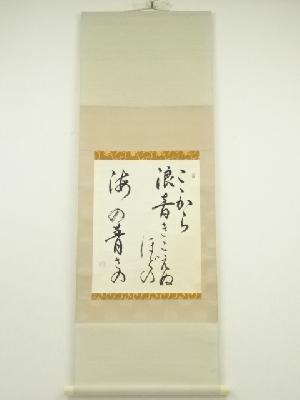 ここから
浪音きこえぬ
ほどの
海の青さの